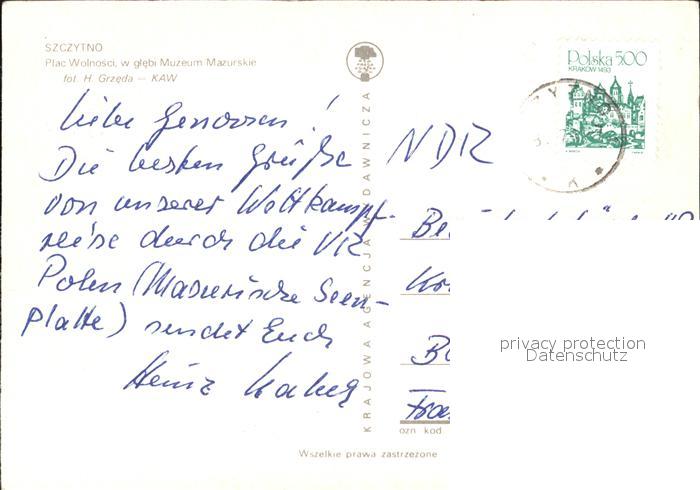 SZCZYTNO
Plac Wolności, w głębi Muzeum Mazurskie
fot. H. Grzęda — KAW
Liebe Genossen!
Die besten Grüße
von unserer Wettkampf-
reise durch die VR
Polen (Masurische Seen-
platte) sendet Euch
Heinz
KRAJOWA AGENCJA WYDAWNICZA
Polska 5.00
KRAKÓW 1493
NDR
Be
Kr
privacy protection
Datenschutz
Fra
ozn kod
Wszelkie prawa zastrzeżone